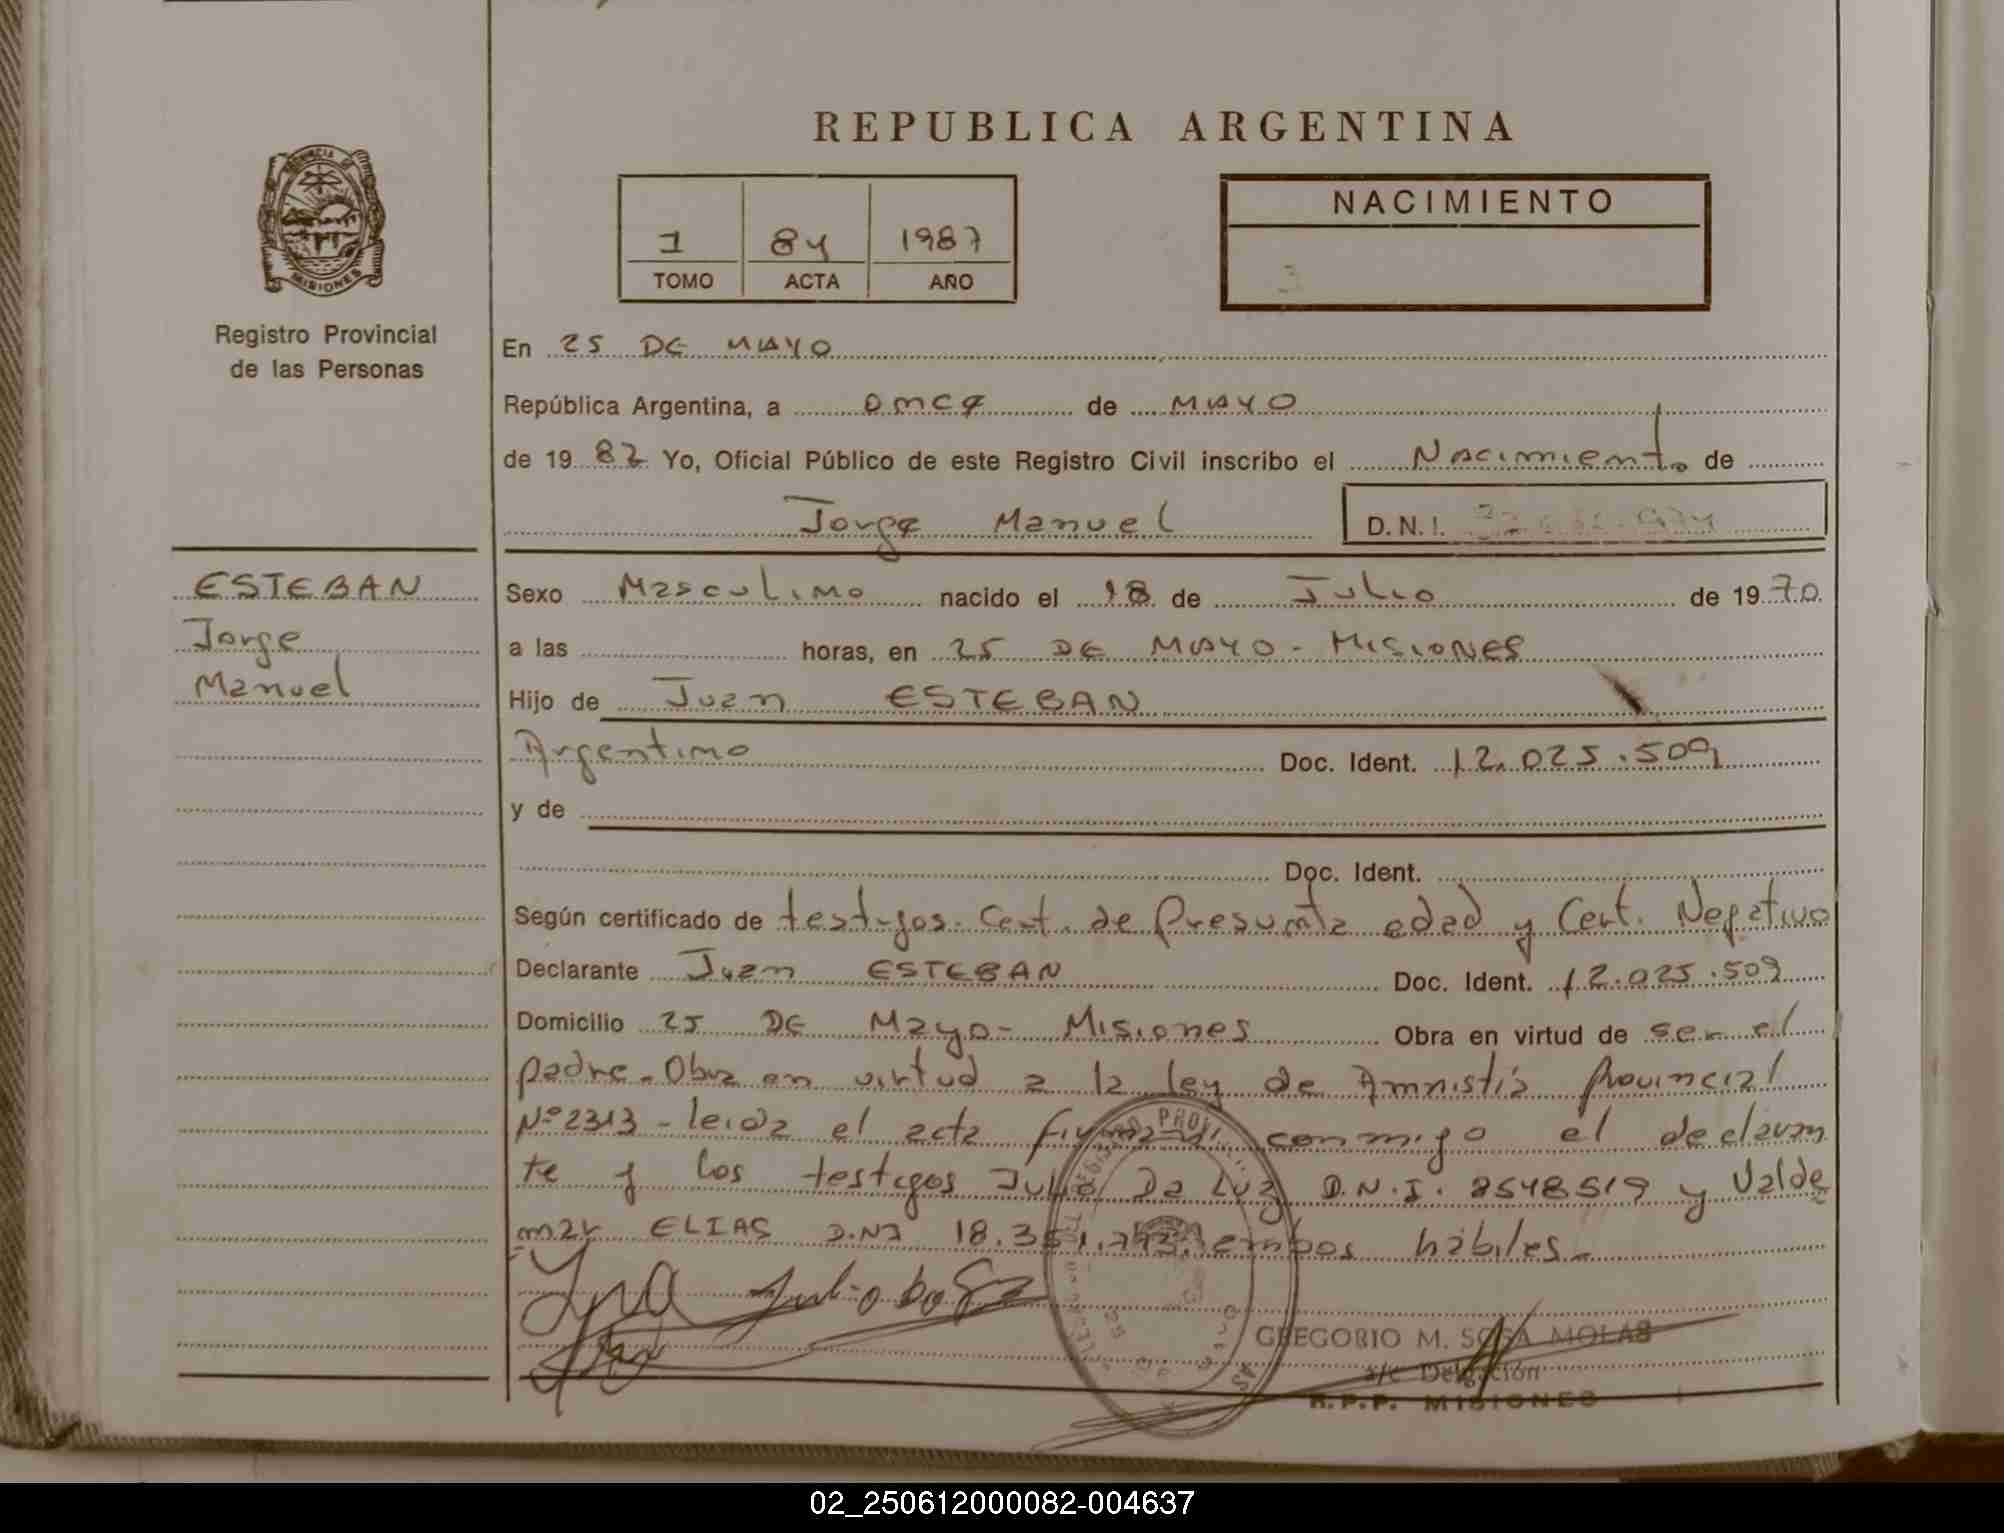 REPUBLICA ARGENTINA
PROVINCIA DE
MISIONES
Registro Provincial
de las Personas
1 84 1987
TOMO ACTA AÑO
NACIMIENTO
3
En 25 DE MAYO
República Argentina, a once de MAYO
de 19 87 Yo, Oficial Público de este Registro Civil inscribo el Nacimiento de
Jorge Manuel D.N.I.
ESTEBAN
Jorge
Manuel
Sexo Masculino nacido el 18 de Julio de 1970
a las horas, en 25 DE MAYO - MISIONES
Hijo de Juan ESTEBAN
Argentino Doc. Ident. 12.025.509
y de
Doc. Ident.
Según certificado de testigos. Cert. de Presunta edad y Cert. Negativo
Declarante Juan ESTEBAN Doc. Ident. 12.025.509
Domicilio 25 DE Mayo - Misiones Obra en virtud de ser el
padre - Obra en virtud a la ley de Amnistía Provincial
Nº 2313 - leída el acta firma conmigo el declaran
te y los testigos Julio Da Luz D.N.I. 8548519 y Valde
mar ELIAS D.N.I 18.351.793 ambos hábiles -
GREGORIO M. SOSA MOLAS
a/c Delegación
R.P.P. MISIONES
02_250612000082-004637